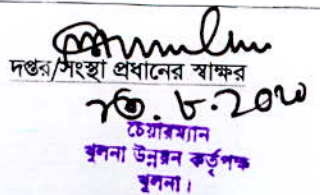 দপ্তর/সংস্থা প্রধানের স্বাক্ষর
চেয়ারম্যান
খুলনা উন্নয়ন কর্তৃপক্ষ
খুলনা।